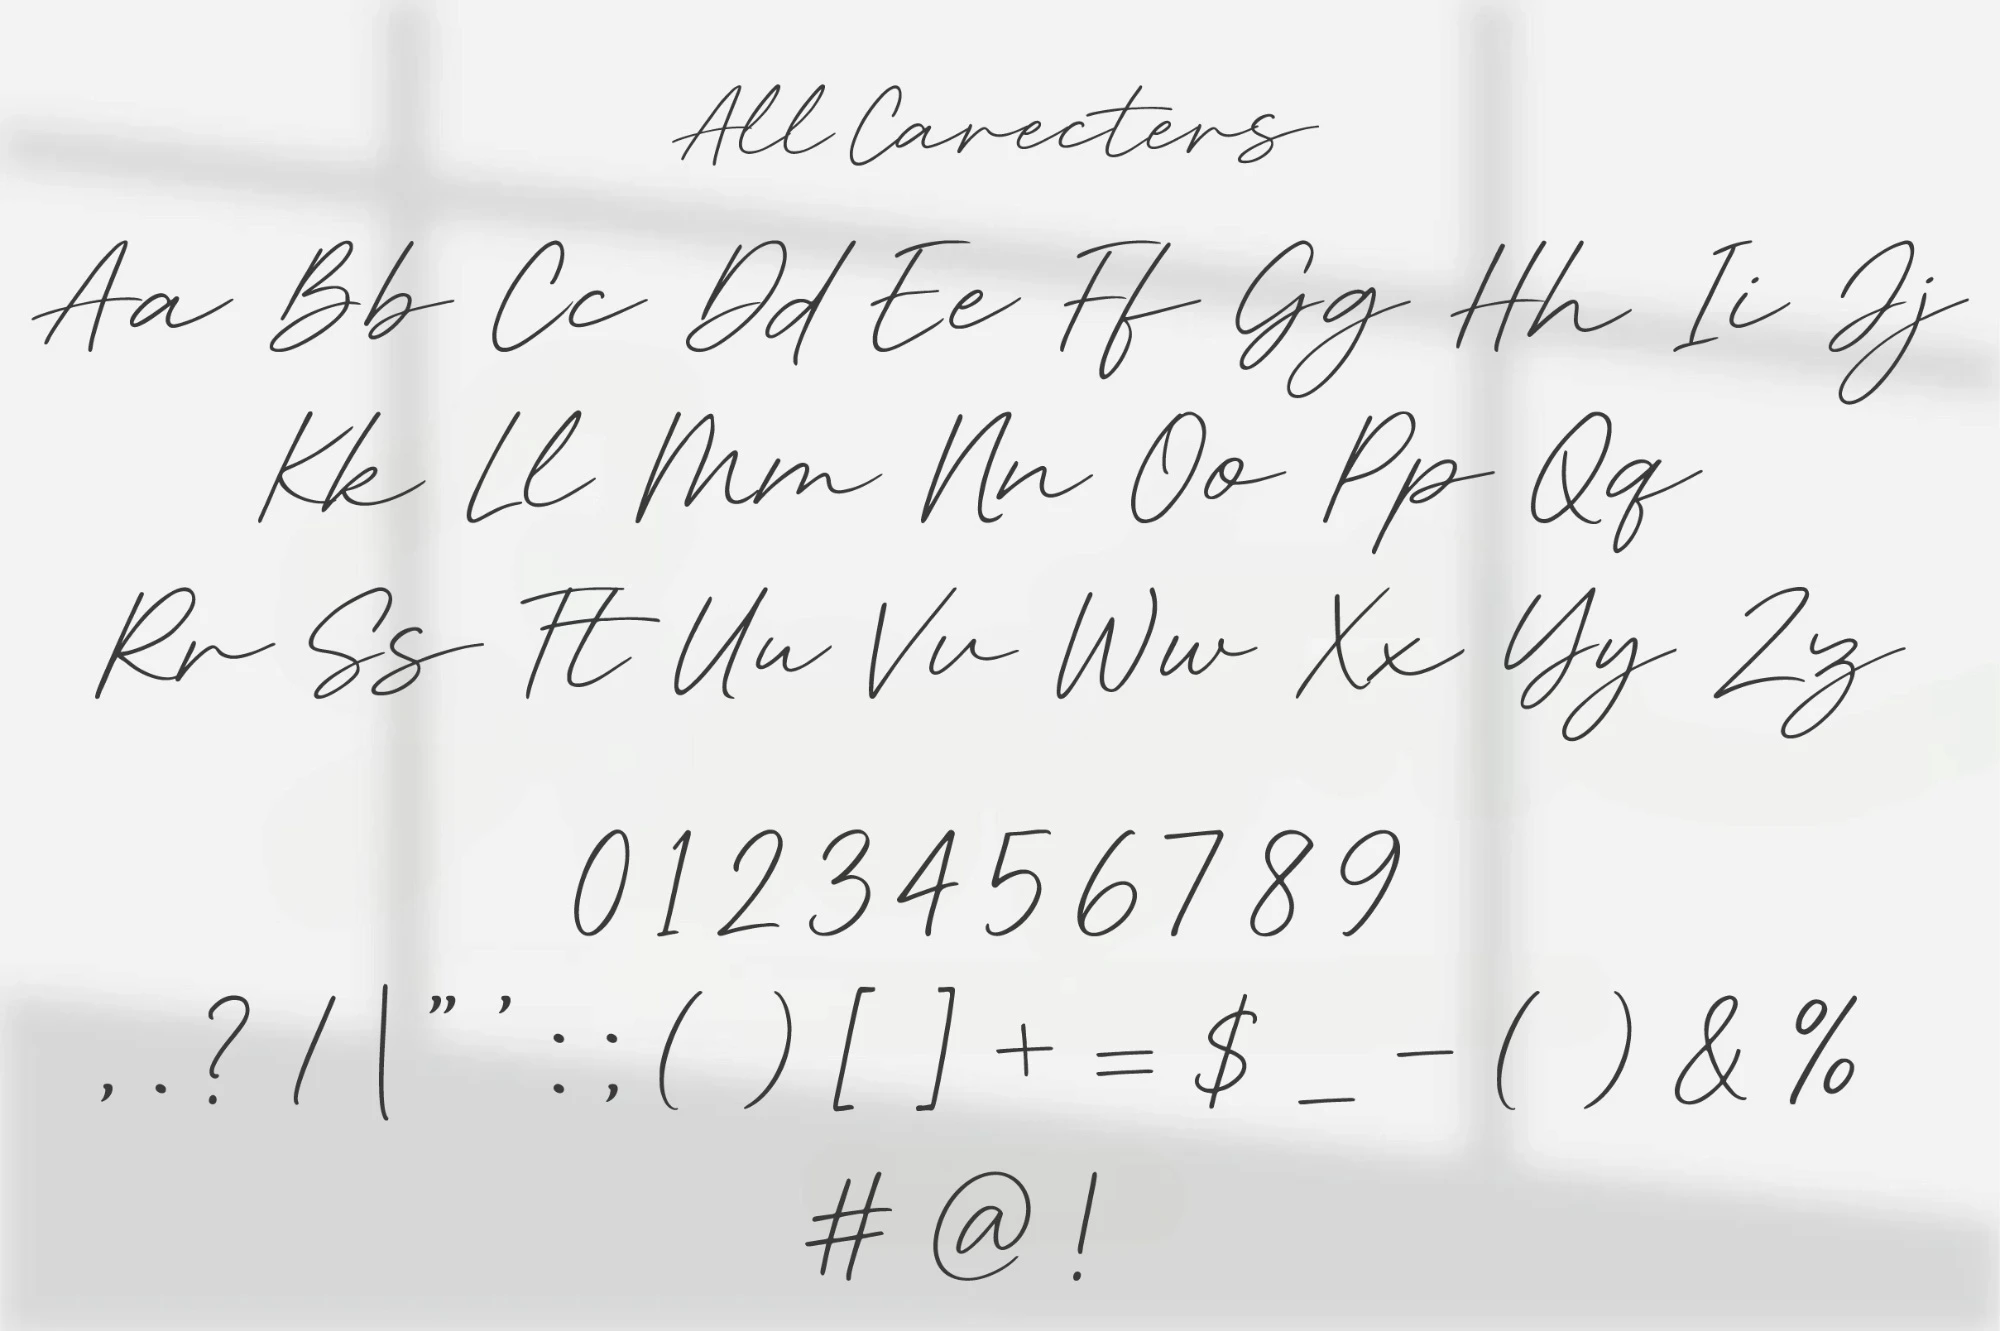 All Carecters
Aa Bb Cc Dd Ee Ff Gg Hh Ii Jj
Kk Ll Mm Nn Oo Pp Qq
Rr Ss Tt Uu Vv Ww Xx Yy Zz
0 1 2 3 4 5 6 7 8 9
, . ? / | ” ’ : ; ( ) [ ] + = $ _ - ( ) & %
# @ !